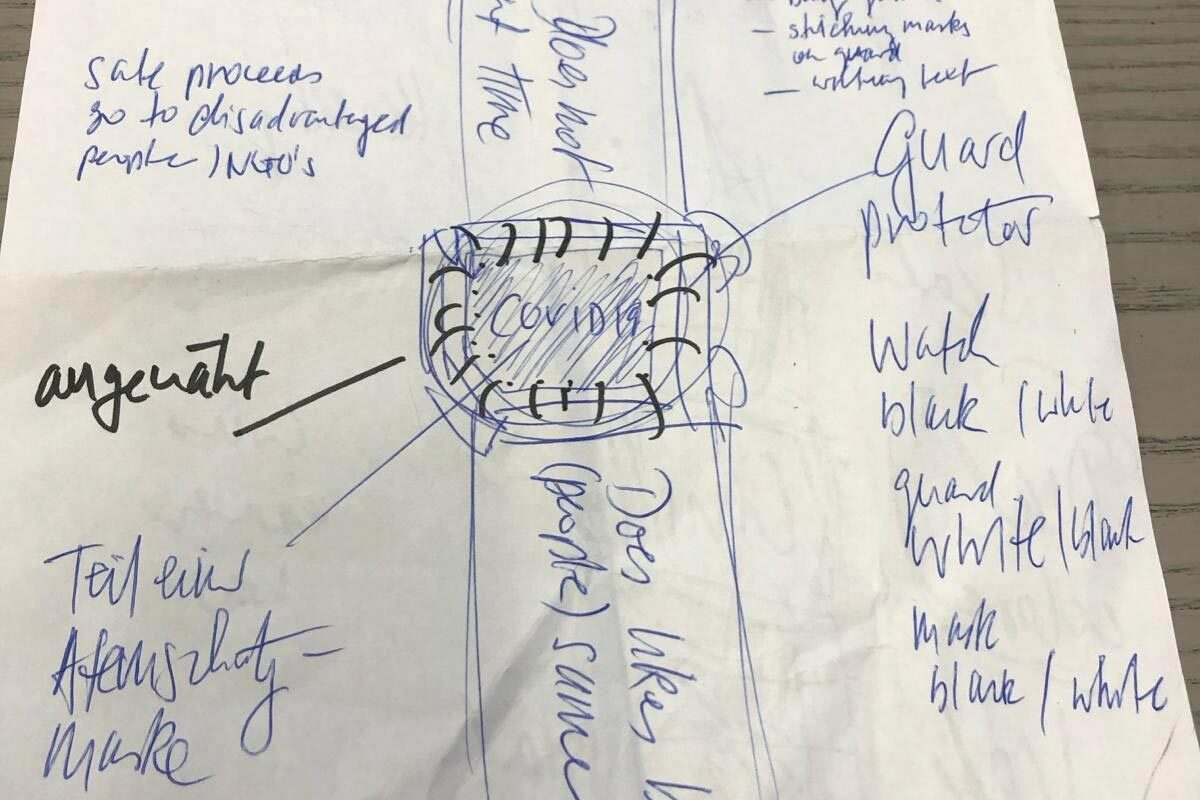 sale proceeds
go to disadvantaged
people / NGO's
Does not
time
– stiching marks
on guard
– without text
Guard
prototor
COVID19
angenäht
Watch
black / white
guard
white / black
mask
black / white
Teil einer
Atemschutz –
Maske
Does likes
(people) same